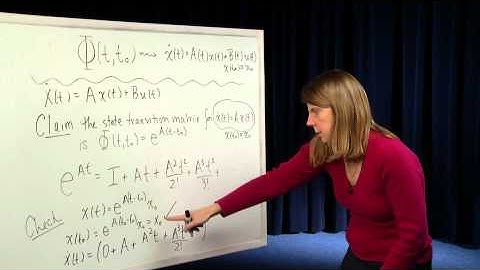 Φ(t,t₀) ⟿ ẋ(t)=A(t)x(t)+B(t)u(t)
x(t₀)=x₀
ẋ(t)=Ax(t)+Bu(t)
Claim the state transition matrix for ẋ(t)=Ax(t)
x(t₀)=x₀
is Φ(t,t₀)=e^{A(t-t₀)}
e^{At} = I + At + A²t²/2! + A³t³/3! +
Check x(t)=e^{A(t-t₀)}x₀
x(t₀)=e^{A(t₀-t₀)}x₀=x₀
ẋ(t)=(0+A+A²t+